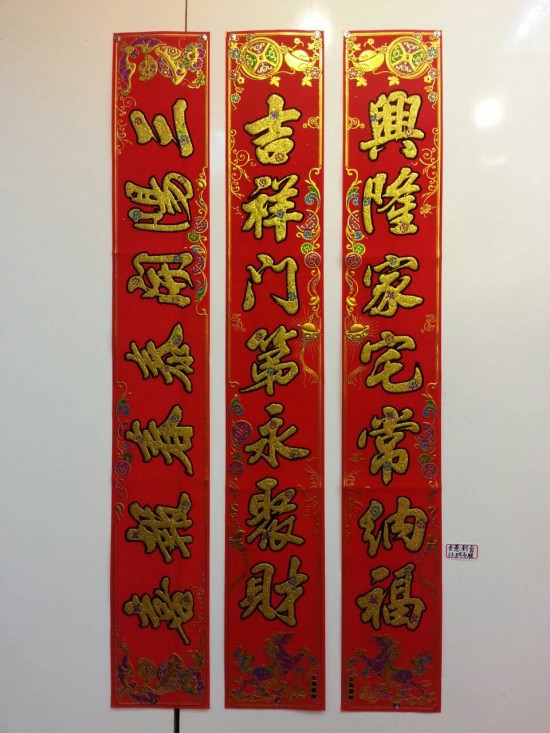 興隆家宅常纳福
吉祥门第永聚財
三陽開泰春報喜